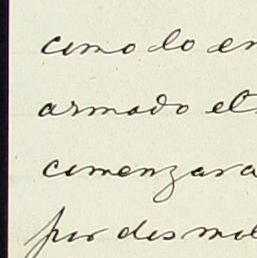 como lo en
armado el
comenzara
por dos mil